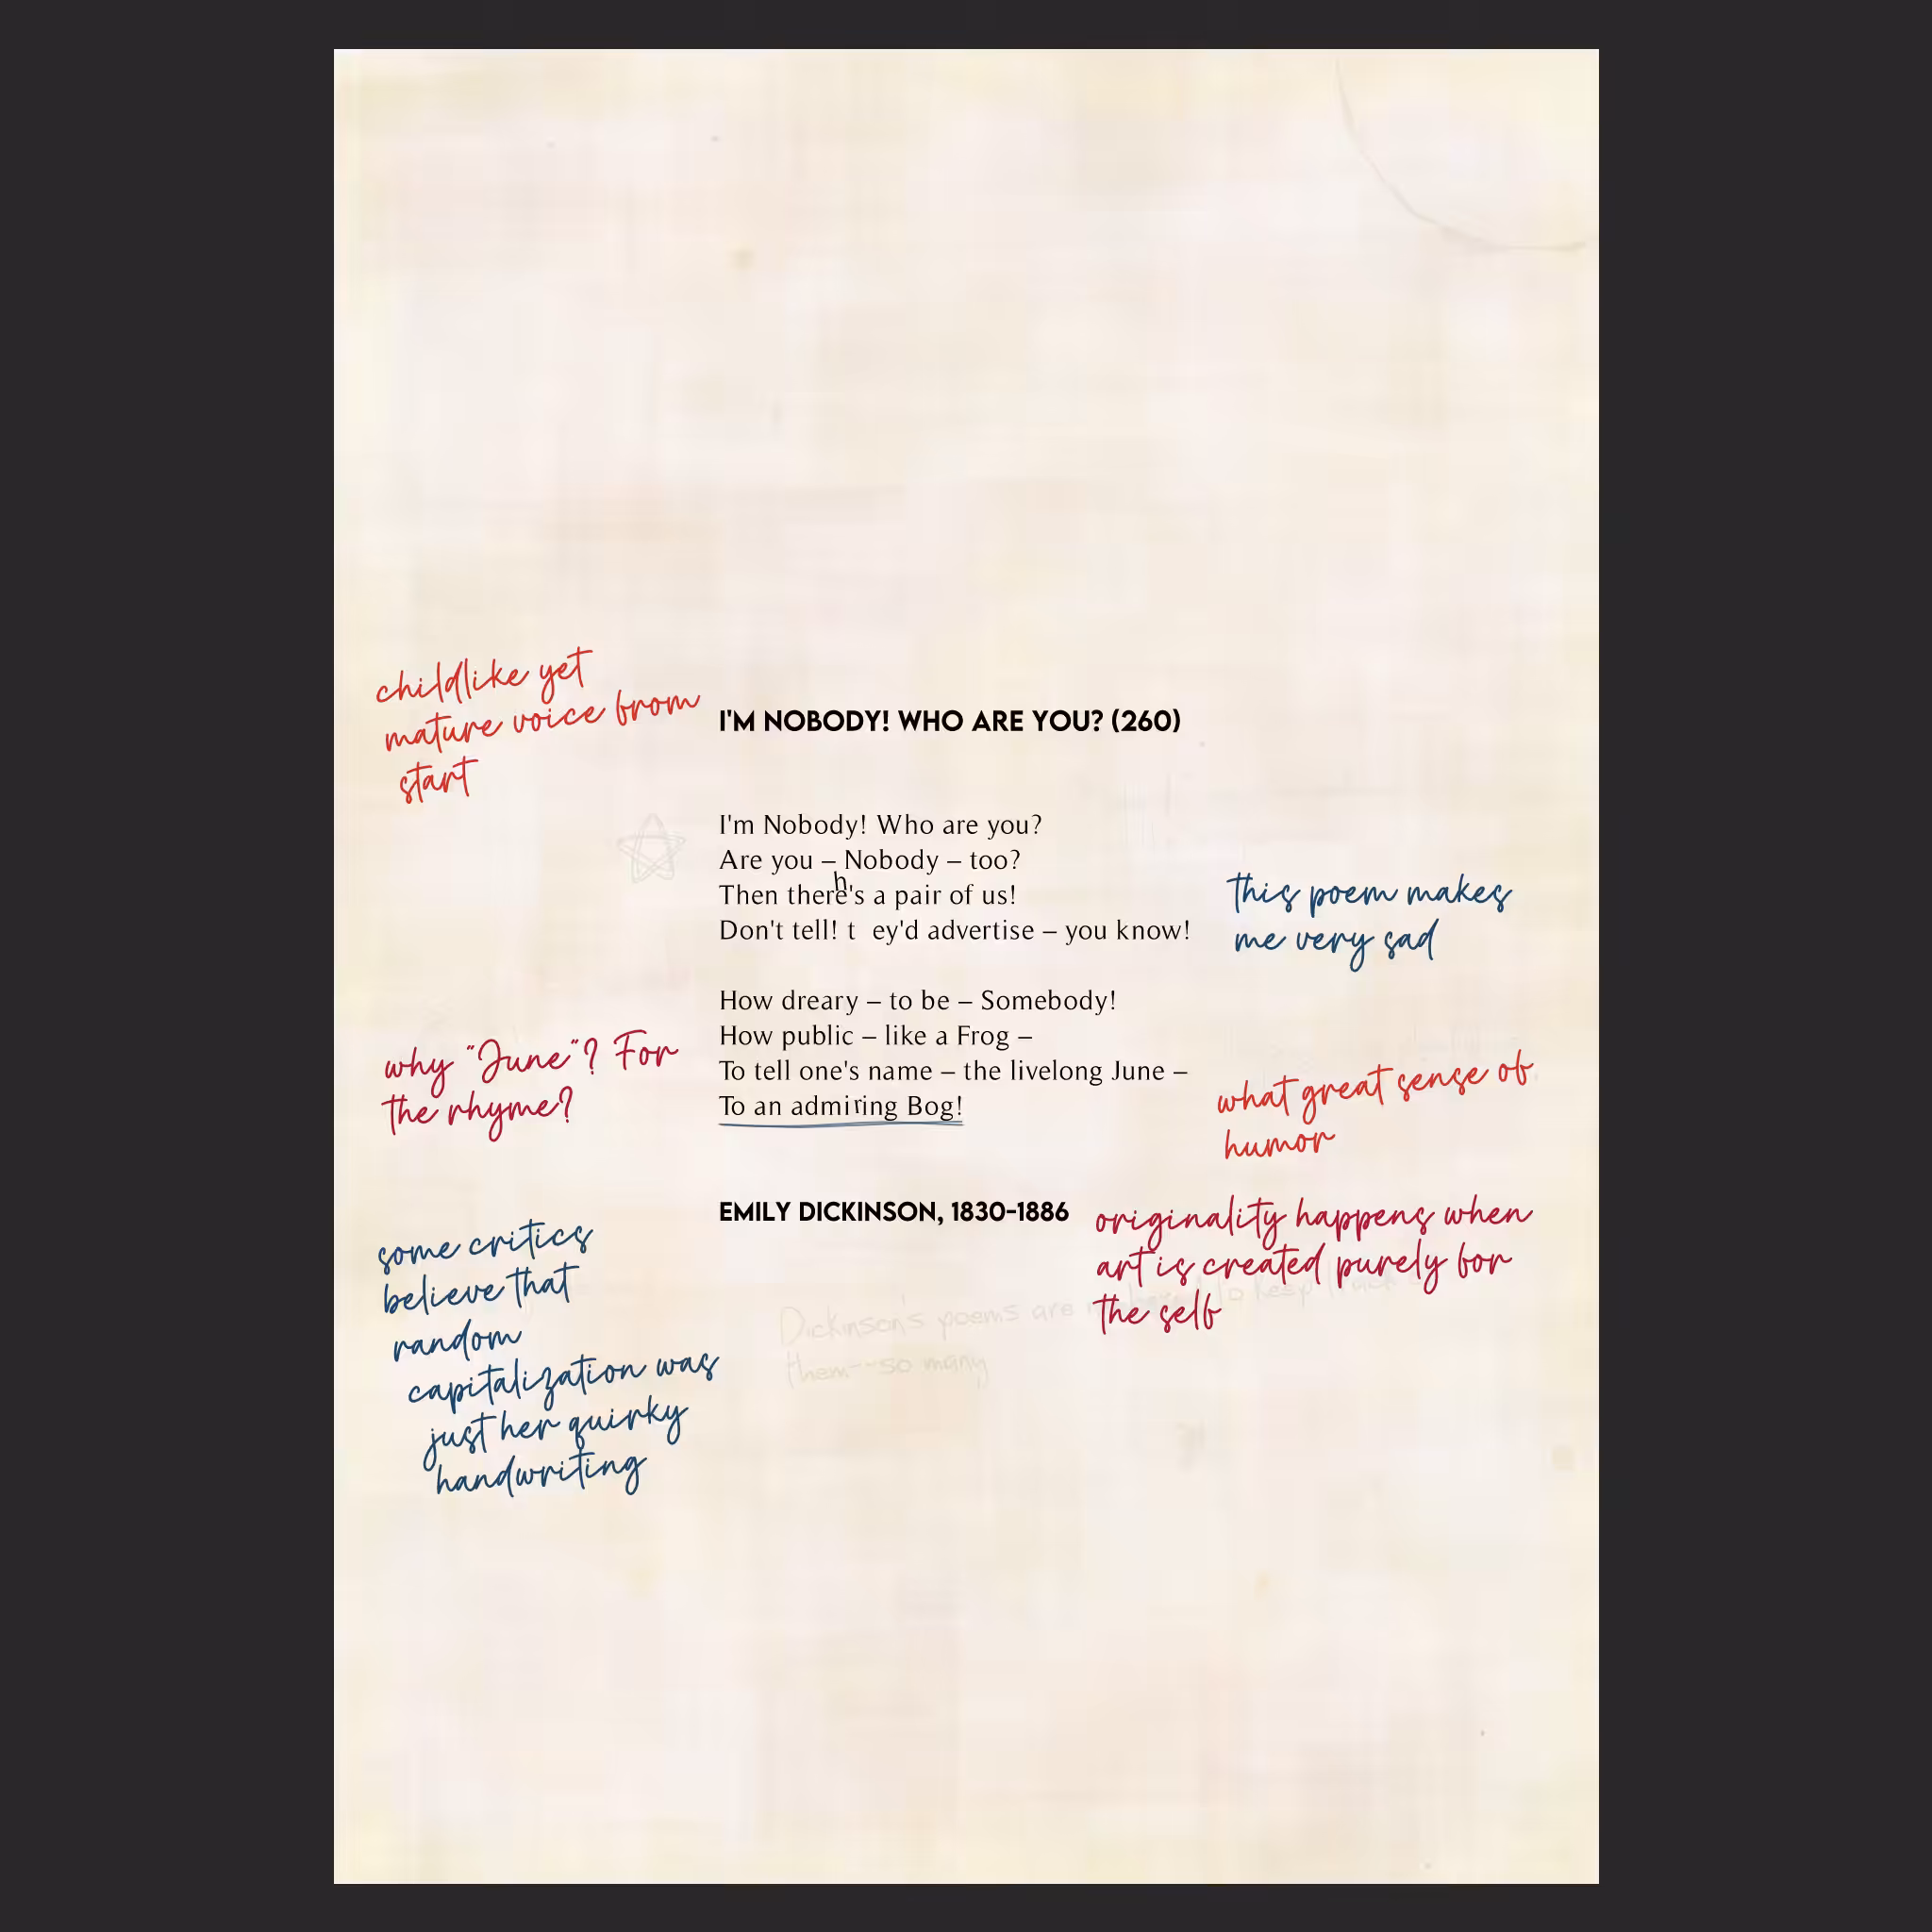 childlike yet
mature voice from
start
I'M NOBODY! WHO ARE YOU? (260)
I'm Nobody! Who are you?
Are you – Nobody – too?
Then there's a pair of us!
h
Don't tell! t ey'd advertise – you know!
this poem makes
me very sad
How dreary – to be – Somebody!
How public – like a Frog –
To tell one's name – the livelong June –
To an admiring Bog!
why "June"? For
the rhyme?
what great sense of
humor
EMILY DICKINSON, 1830-1886
originality happens when
art is created purely for
the self
some critics
believe that
random
capitalization was
just her quirky
handwriting
Dickinson's poems are to keep
them--so many